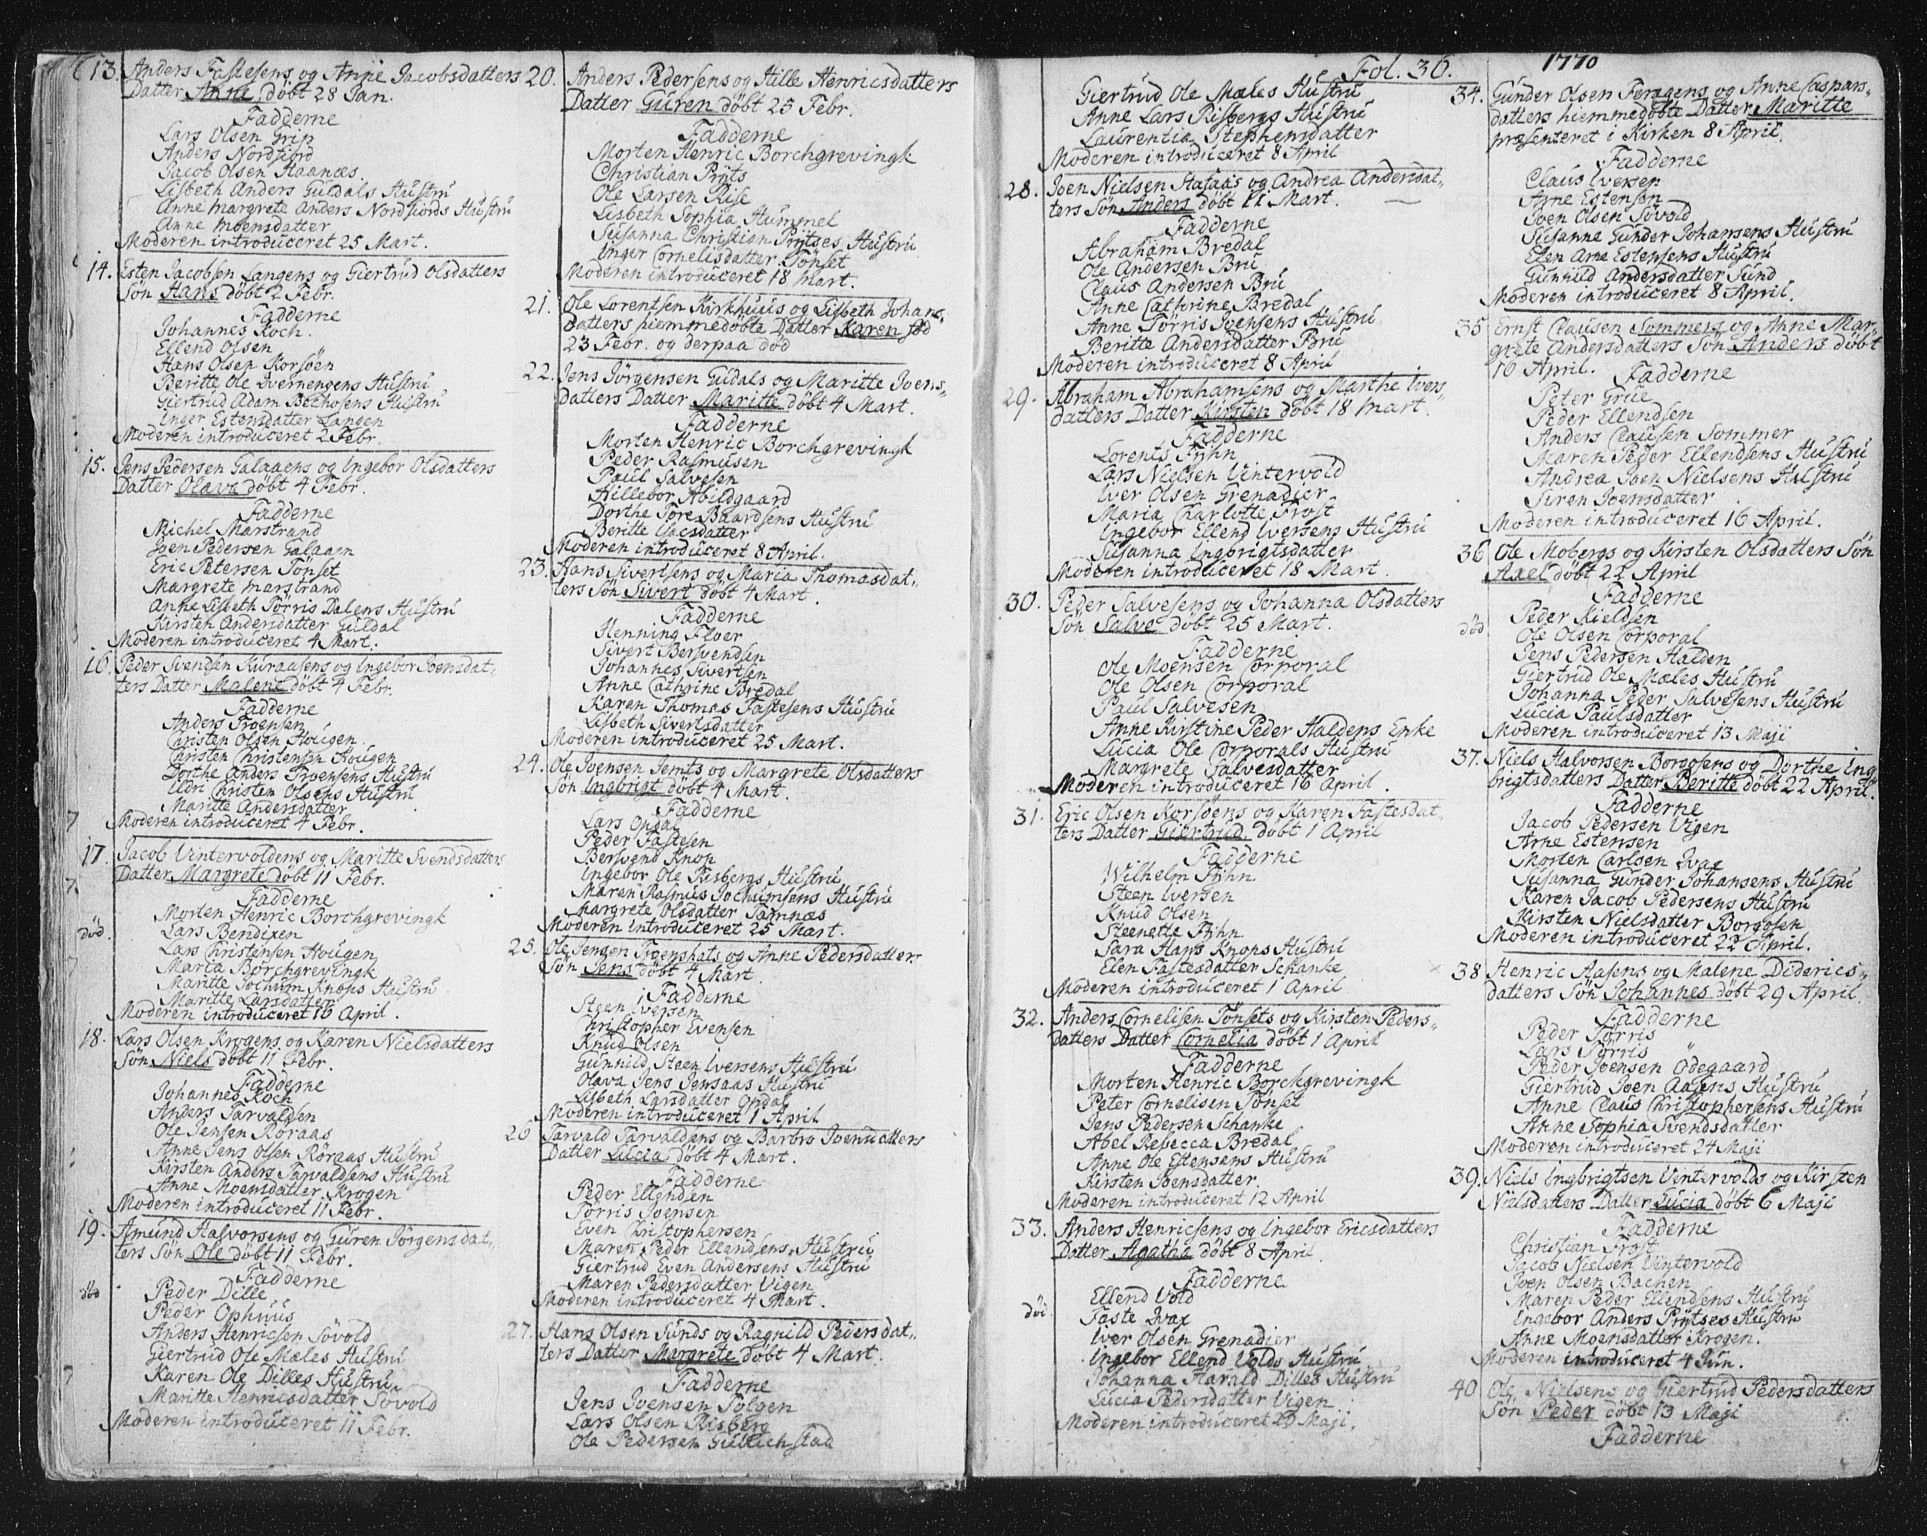 13. Anders Fastesens og Anne Jacobsdatters
Datter Anne döbt 28 Jan.
Fadderne
Lars Olsen Grip
Anders Nordfiord
Jacob Olsen Haanæs
Lisbeth Anders Guldals Hustru
Anne Margrete Anders Nordfiords Hustru
Anne Moensdatter
Moderen introduceret 25 Mart.
14. Esten Jacobsen Langens og Giertrud Olsdatters
Sön Hans döbt 2 Febr.
Fadderne
Johannes Koch.
Ellend Olsen
Hans Olsen Korsöen
Beritte Ole Qvernengens Hustru
Giertrud Adam Bechosens Hustru
Inger Estensdatter Langen
Moderen introduceret 2 Febr.
15. Jens Pedersen Galaaens og Ingebor Olsdatters
Datter Olava döbt 4 Febr.
Fadderne
Michel Marstrand
Joen Pedersen Galaaen
Eric Petersen Tönset
Margrete Marstrand
Anne Lisbeth Törris Dalens Hustru
Kirsten Andersdatter Guldal
Moderen introduceret 4 Mart.
16. Peder Svendsen Kuraasens og Ingebor Joensdat-
ters Datter Malene döbt 4 Febr.
Fadderne
Anders Troensen
Christen Olsen Hougen
Christen Christensen Hougen
Dorthe Anders Troensens Hustru
Eldri Christen Olsens Hustru
Maritte Andersdatter
Moderen introduceret 4 Febr.
17. Jacob Vintervoldens og Maritte Svendsdatters
Datter Margrete döbt 11 Febr.
Fadderne
Morten Henric Borchgrevingk
död. Lars Bendixen
Lars Christensen Hougen
Maria Borchgrevingk
Maritte Jochum Knops Hustru
Maritte Larsdatter
Moderen introduceret 16 April.
18. Lars Olsen Krogens og Karen Nielsdatters
Sön Niels döbt 11 Febr.
Fadderne
Johannes Koch
Anders Tarvaldsen
Ole Jensen Röraas
Anne Jens Olsen Röraas Hustru
Kirsten Anders Tarvaldsens Hustru
Anne Moensdatter Krogen
Moderen introduceret 11 Febr.
19. Amund Halvorsens og Guren Jörgensdat-
ters Sön Ole döbt 11 Febr.
Fadderne
död Peder Dille
Peder Ophuus
Anders Henricsen Sövold
Giertrud Ole Mæles Hustru
Karen Ole Dilles Hustru
Maritte Henricsdatter Sövold
Moderen introduceret 11 Febr.
20. Anders Pedersens og Hille Henricsdatters
Datter Guren döbt 25 Febr.
Fadderne
Morten Henric Borchgrevingk
Christian Prÿts
Ole Larsen Rise
Lisbeth Sophia Hummel
Susanna Christian Prÿtses Hustru
Inger Cornelisdatter Tönset
Moderen introduceret 18 Mart.
21. Ole Lorentsen Kirkhuus og Lisbeth Johans-
datters hiemmedöbte Datter Karen död
23 Febr. og derpaa död
22. Jens Jörgensen Guldals og Maritte Joens-
datters Datter Maritte döbt 4 Mart.
Fadderne
Morten Henric Borchgrevingk
Peder Rasmusen
Paul Salvesen
Hillebor Abildgaard
Dorthe Tore Baardsens Hustru
Beritte Isacsdatter
Moderen introduceret 8 April.
23. Hans Sivertsens og Maria Thomasdat-
ters Sön Sivert döbt 4 Mart.
Fadderne
Henning Floer
Sivert Bersvendsen
Johannes Sivertsen
Anne Cathrine Bredal
Karen Thomas Fastesens Hustru
Lisbeth Sivertsdatter
Moderen introduceret 25 Mart.
24. Ole Joensen Jemts og Margrete Olsdatters
Sön Ingbrigt döbt 4 Mart.
Fadderne
Lars Opdal
Peder Fastesen
Bersvend Knop
Ingebor Ole Risbergs Hustru
Maren Rasmus Jochumsens Hustru
Margrete Olsdatter Tamnæs
Moderen introduceret 25 Mart.
25. Ole Jensen Troenshats og Anne Pedersdatters
Sön Jens döbt 4 Mart
Fadderne
Steen Iversen
Christopher Evensen
Knud Olsen
Gunnild Steen Iversens Hustru
Olava Jens Jensaas Hustru
Lisbeth Larsdatter Opdal
Moderen introduceret 1 April
26 Tarvald Tarvaldsens og Barbro Joensdatters
Datter Lucia döbt 4 Mart.
Fadderne
Peder Ellendsen
Törris Joensen
Even Christophersen
Maren Peder Ellendsens Hustru
Giertrud Even Andersens Hustru
Maren Pedersdatter Vigen
Moderen introduceret 4 Mart.
27. Hans Olsen Sunds og Ragnild Pedersdat-
ters Datter Margrete döbt 4 Mart.
Fadderne
Jens Joensen Tolgen
Lars Olsen Risberg
Ole Pedersen Gullichstad
Fol. 36.
Giertrud Ole Mæles Hustru
Anne Lars Risbergs Hustru
Laurentia Stephensdatter
Moderen introduceret 8 April
28. Joen Nielsen Stafaas og Andrea Andersdat-
ters Sön Anders döbt 11 Mart.
Fadderne
Abraham Bredal
Ole Andersen Bru
Claus Andersen Bru
Anne Cathrine Bredal
Anne Törris Joensens Hustru
Beritte Andersdatter Bru
Moderen introduceret 8 April
29. Abraham Abrahamsens og Marthe Ivers-
datters Datter Kirsten döbt 18 Mart.
Fadderne
Lorents Frÿhn
Lars Nielsen Vintervold
Iver Olsen Grenadier
Maria Charlotte Frost
Ingebor Ellend Iversens Hustru
Susanna Ingbrigtsdatter
Moderen introduceret 18 Mart.
30. Peder Salvesens og Johanna Olsdatters
Sön Salve döbt 25 Mart.
Fadderne
Ole Moensen Corporal
Ole Olsen Corporal
Paul Salvesen
Anne Kirstine Peder Haldens Enke
Lucia Ole Corporals Hustru
Margrete Salvesdatter
Moderen introduceret 16 April.
31. Eric Olsen Korsöens og Karen Fastesdat-
ters Datter Giertrud döbt 1 April
Fadderne
Wilhelm Frÿhn
Steen Iversen
Knud Olsen
Steenette Frÿhn
Sara Hans Knops Hustru
Elen Fastesdatter Schanke
Moderen introduceret 1 April
32. Anders Cornelisen Tönsets og Kirsten Peders-
datters Datter Cornelia döbt 1 April
Fadderne
Morten Henric Borchgrevingk
Peter Cornelisen Tönset
Jens Pedersen Schanke
Abel Rebecca Bredal
Anne Ole Estensens Hustru
Kirsten Joensdatter
Moderen introduceret 12 April
33. Anders Henricsens og Ingebor Ericsdatters
Datter Agatha döbt 8 April
Fadderne
Ellend Vold
död. Faste Qvax
Iver Olsen Grenadier
Ingebor Ellend Volds Hustru
Johanna Harald Dilles Hustru
Lucia Pedersdatter Vigen
Moderen introduceret 20 Maji.
1770
34. Gunder Olsen Feragens og Anne Caspars-
datters hiemmedöbte Datter Maritte
præsenteret i Kirken 8 April.
Fadderne
Claus Iversen
Arne Estensen
Joen Olsen Sövold
Susanne Gunder Johansens Hustru
Elen Arne Estensens Hustru
Gunnild Andersdatter Sund
Moderen introduceret 8 April.
35. Ernst Clausen Sommers og Anne Mar-
grete Andersdatters Sön Anders döbt
16 April. Fadderne
Peter Grue
Peder Ellendsen
Anders Clausen Sommer
Maren Peder Ellendsens Hustru
Andrea Joen Nielsens Hustru
Siren Joensdatter
Moderen introduceret 16 April.
36 Ole Mobergs og Kirsten Olsdatters Sön
Axel döbt 22 April
Fadderne
Peder Kieldsen
död Ole Olsen Corporal
Jens Pedersen Halden
Giertrud Ole Mæles Hustru
Johanna Peder Salvesens Hustru
Lucia Paulsdatter
Moderen introduceret 13 Maji
37. Niels Halvorsen Borgosens og Dorthe Eng-
brigtsdatters Datter Beritte döbt 22 April.
Fadderne
Jacob Pedersen Vigen
Arne Estensen
Morten Carlsen Qvax
Susanna Gunder Johansens Hustru
Karen Jacob Pedersens Hustru
Kirsten Nielsdatter Borgosen
Moderen introduceret 22 April.
38 Henric Aasens og Malene Diderics-
datters Sön Johannes döbt 29 April.
Fadderne
Peder Törris
Lars Törris
Peder Joensen Ödegaard
Giertrud Joen Aasens Hustru
Anne Claus Christophersens Hustru
Anne Sophia Svendsdatter
Moderen introduceret 24 Maji
39. Niels Engbrigtsen Vintervolds og Kirsten
Nielsdatters Datter Lucia döbt 6 Maji
Fadderne
Christian Frost
Jacob Nielsen Vintervold
Joen Olsen Bachen
Maren Peder Ellendsens Hustru
Ingebor Anders Prÿtses Hustru
Anne Moensdatter Krogen.
Moderen introduceret 4 Jun.
40 Ole Nielsens og Giertrud Pedersdatters
Sön Peder döbt 13 Maji
Fadderne